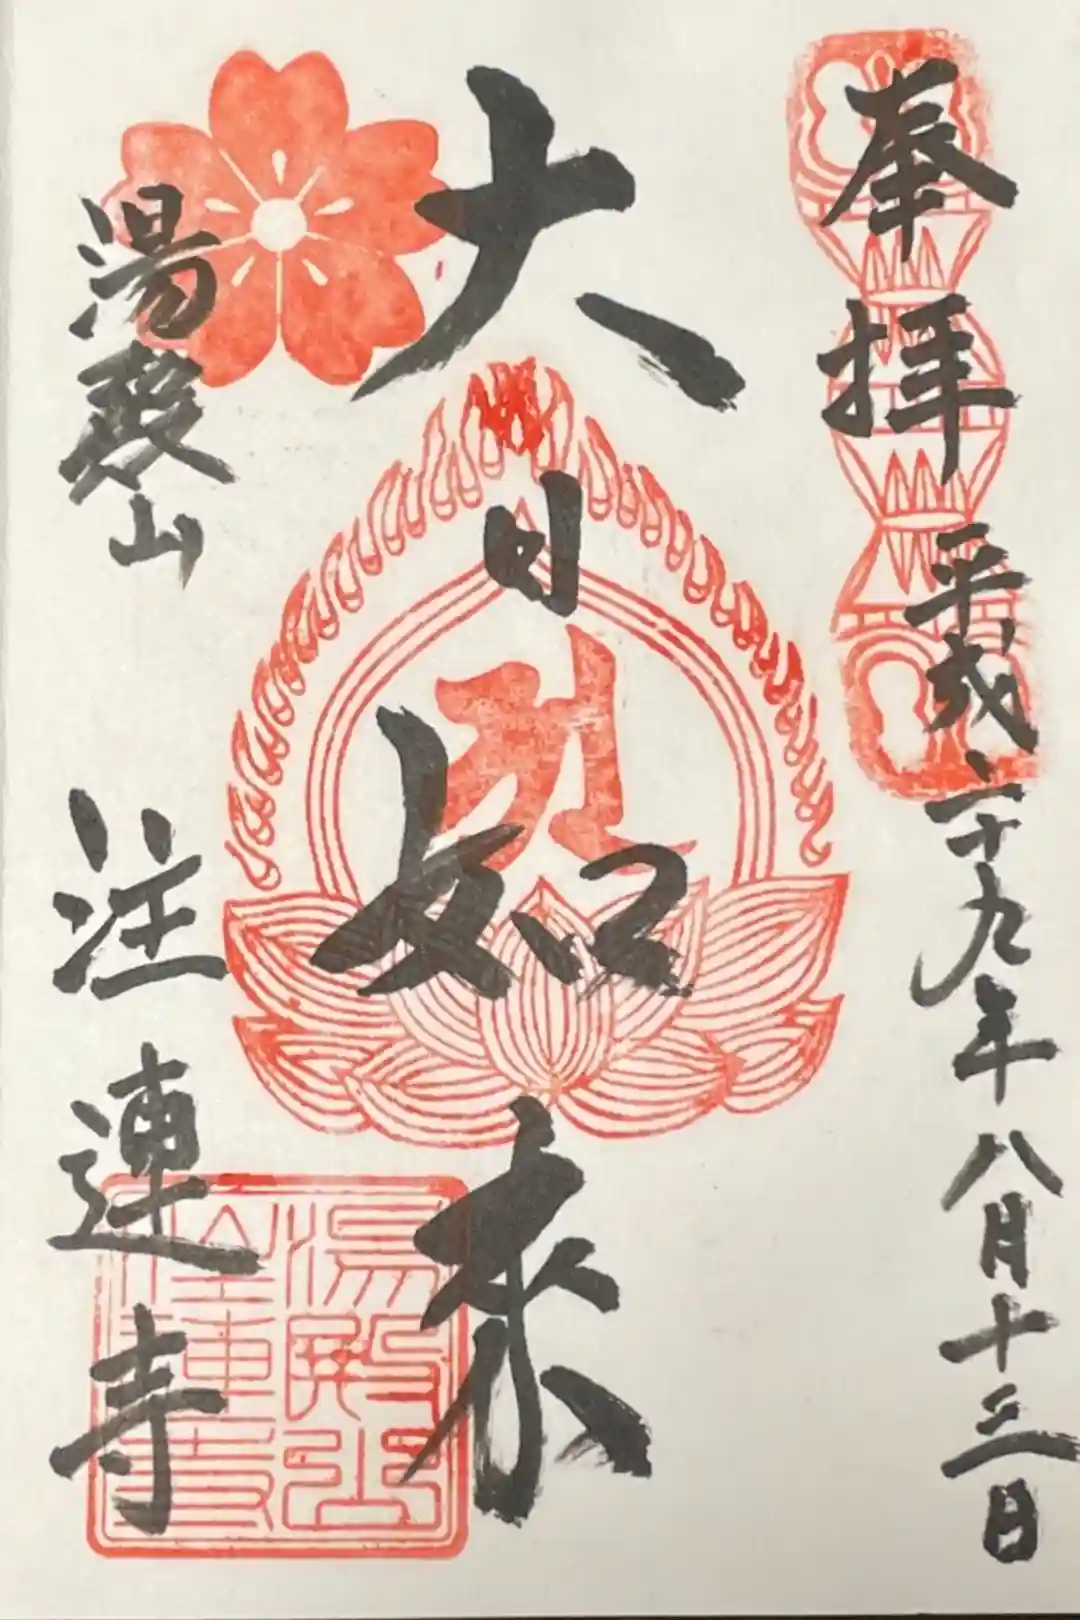 奉拝 平成二十九年八月十三日
大日如来
湯殿山 注連寺
湯殿山
注連寺